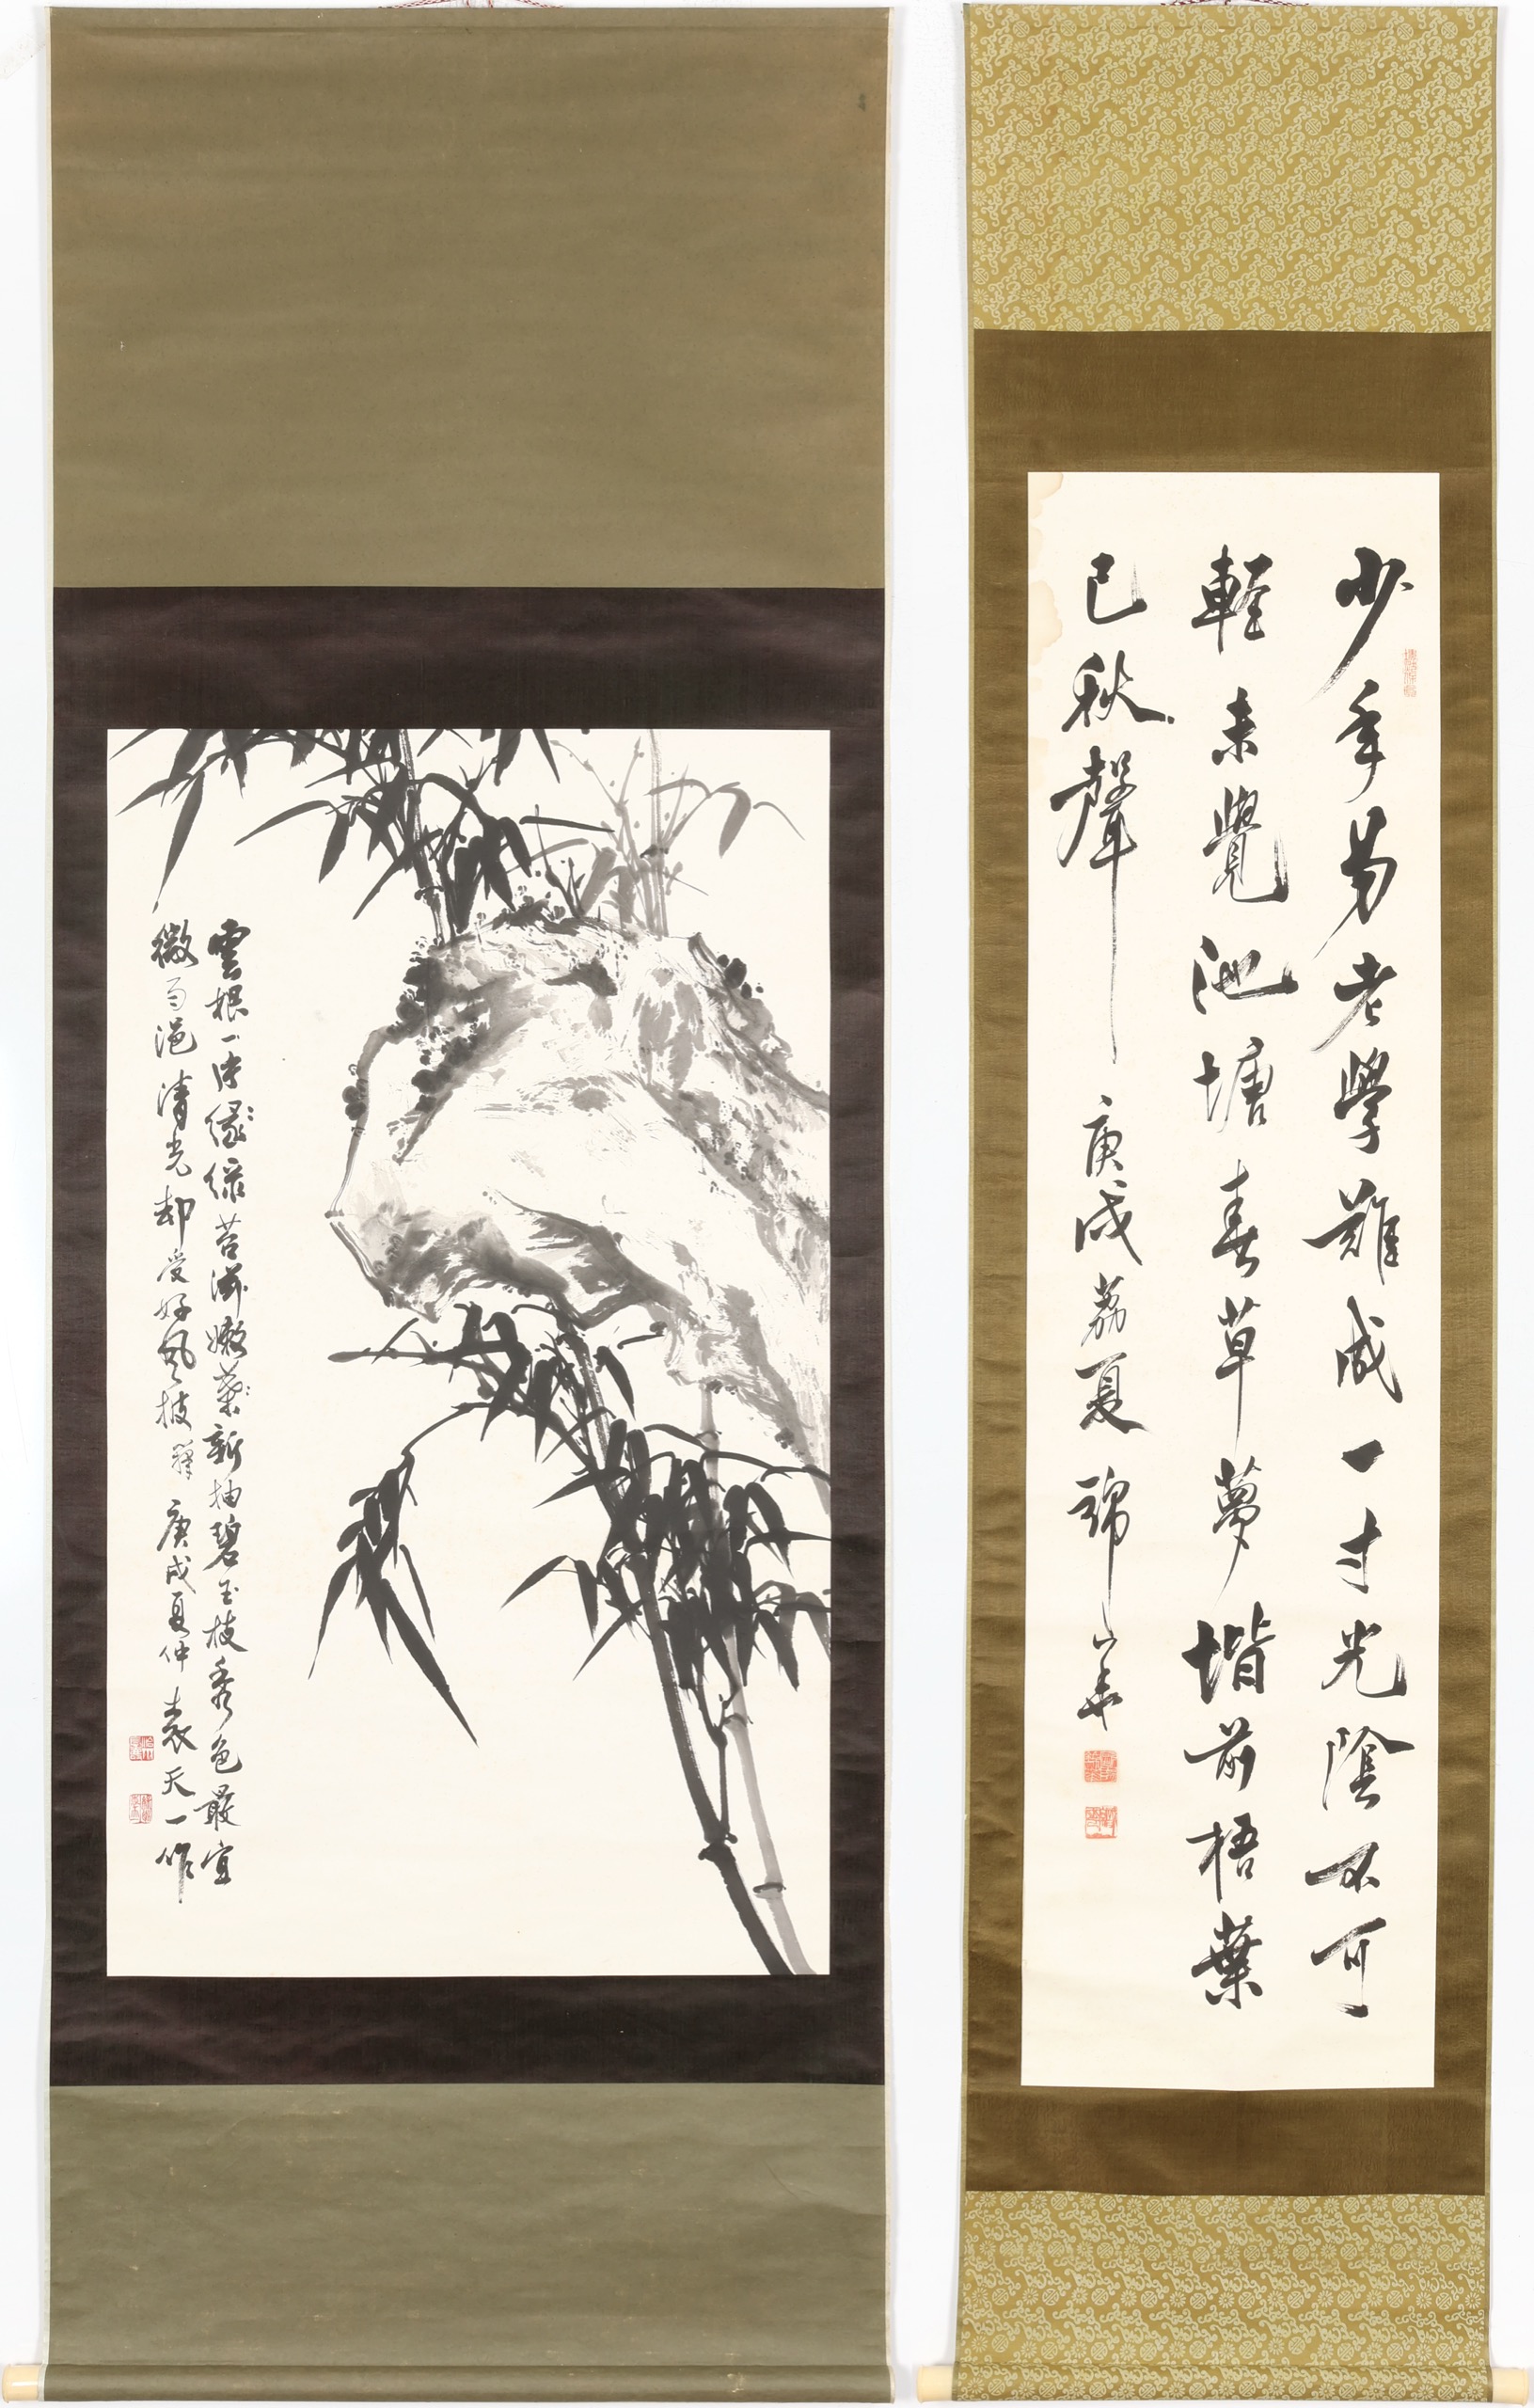 少年易老學難成一寸光陰不可
輕未覺池塘春草夢堦前梧葉
已秋聲 庚戌荔夏 錦山
雲根一片緣綠苔滋嫩葉新抽碧玉枝秀色最宜
微雨浥清光却受好風披籜 庚戌夏仲 袁天一作